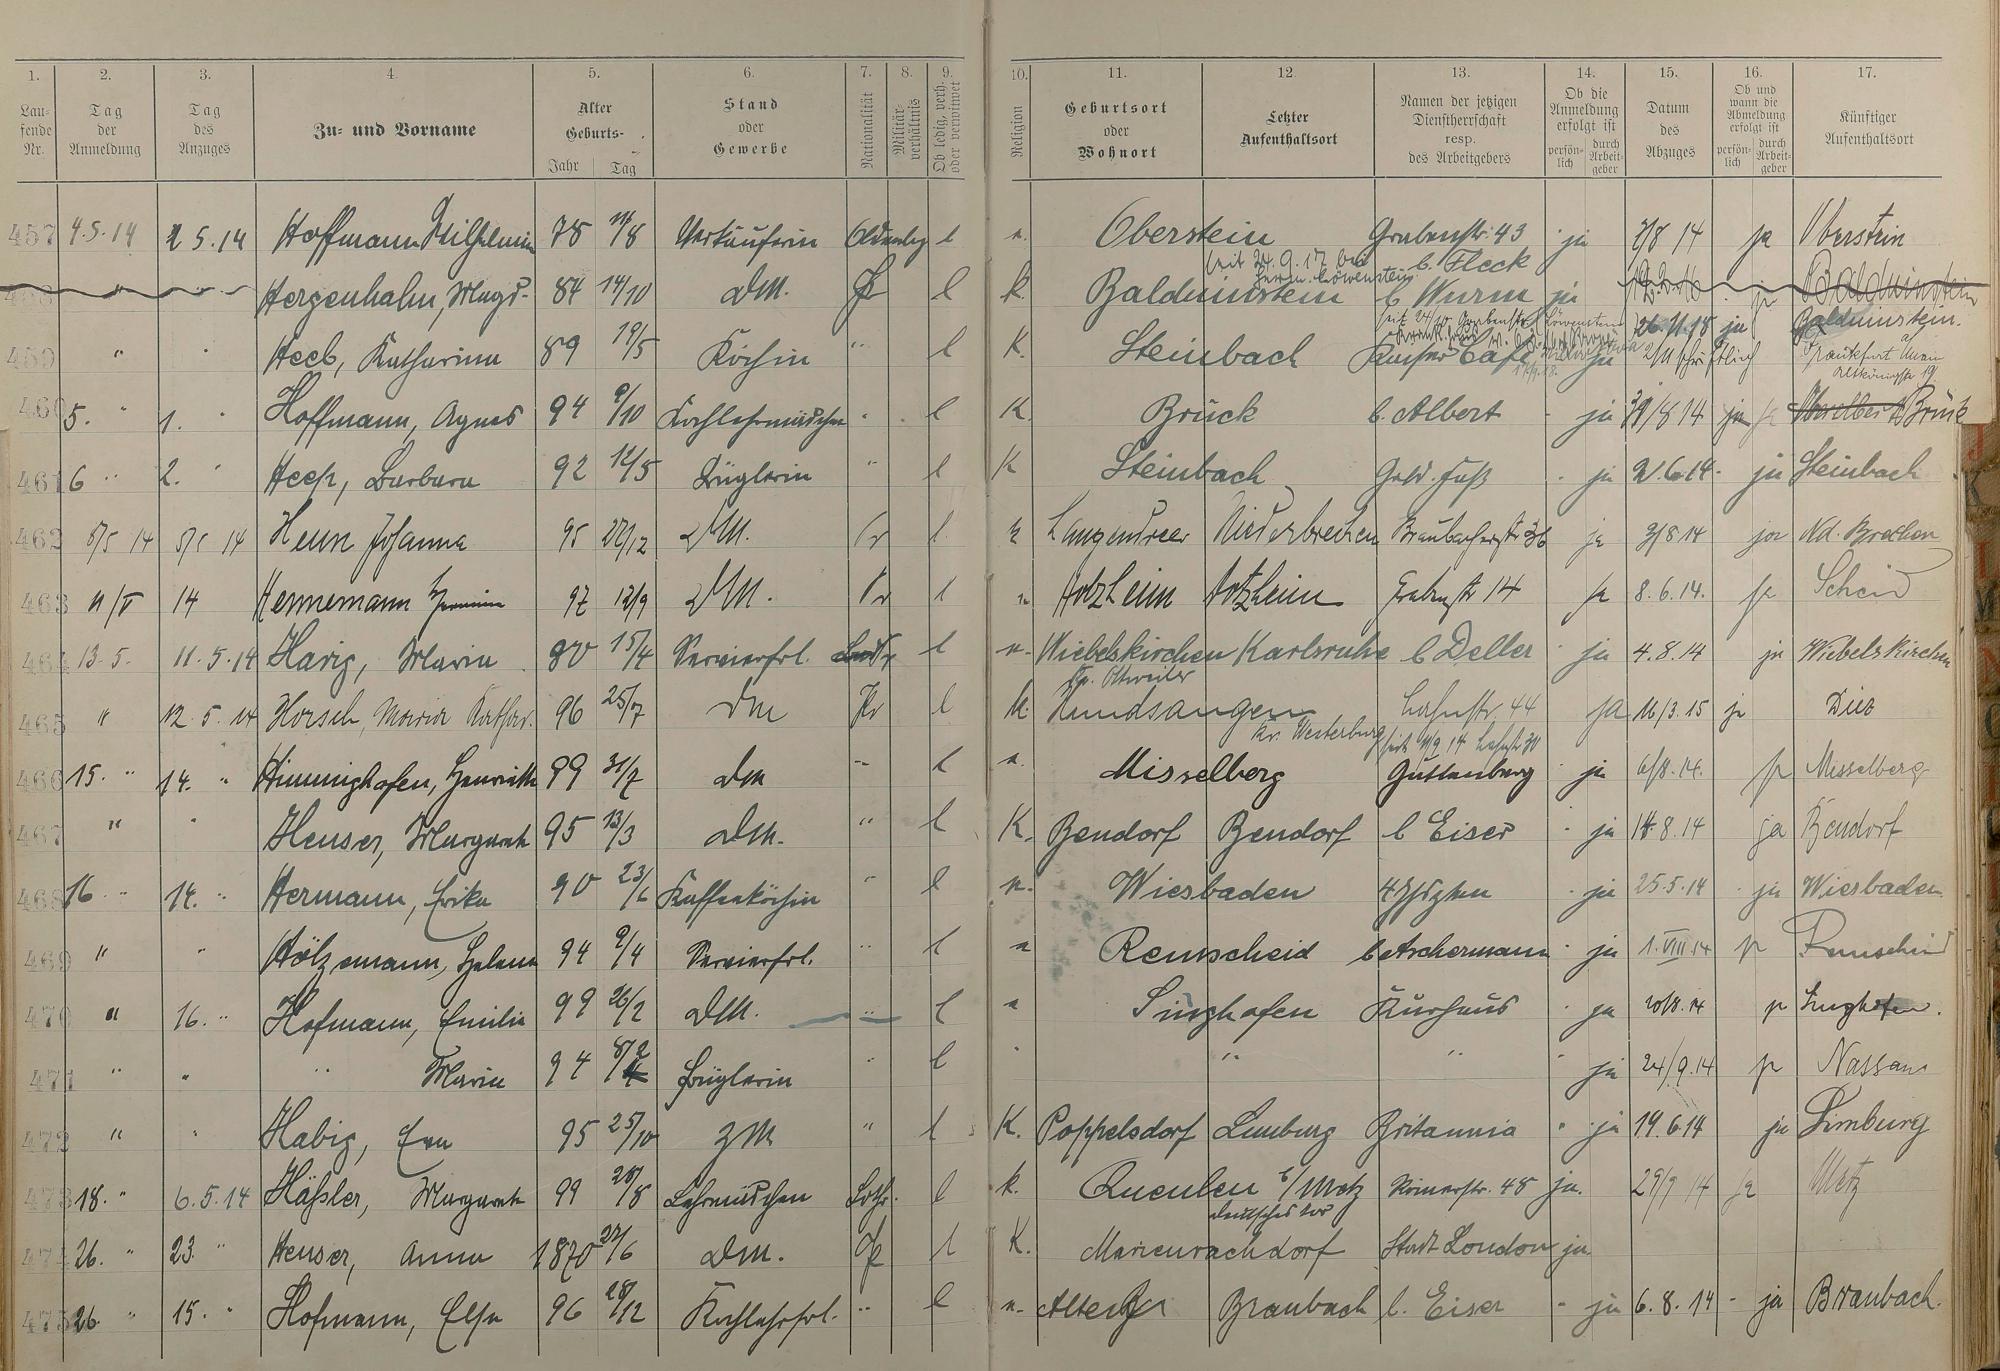 1. 2. 3. 4. 5. 6. 7. 8. 9. 10. 11. 12. 13. 14. 15. 16. 17.
Lau-fende Nr. Tag der Anmeldung Tag des Anzuges Zu- und Vorname Alter Geburts- Jahr Tag Stand oder Gewerbe Nationalität Militär-verhältnis Ob ledig, verh. oder verwitwet Religion Geburtsort oder Wohnort Letzter Aufenthaltsort Namen der jetzigen Dienstherrschaft resp. des Arbeitgebers Ob die Anmeldung erfolgt ist persön-lich durch Arbeit-geber Datum des Abzuges Ob und wann die Abmeldung erfolgt ist persön-lich durch Arbeit-geber Künftiger Aufenthaltsort
457 4.5.14 2 5.14 Hoffmann Wilhelmine 78 /8 Verkäuferin Oldenbg l Oberstein Grabenstr. 43 ja 7/8 14 ja Oberstein
seit 24.9.17 bei Herrn Löwenstein b. Fleck
458 " " Hergenhahn, Magd. 84 14/10 DM. Pr l k. Balduinstein b Wurm ja ja Balduinstein
26.11.18 ja Balduinstein.
459 " " Heeb, Katharina 89 19/5 Köchin " l K. Steinbach Kaiser Café ja 2/11 schriftlich Frankfurt a Main
460 5. " 1. " Hoffmann, Agnes 94 9/10 Kochlehrmädchen " l K. Brück b. Albert ja 31/8 14 ja Brück
461 6 " 2. " Heep, Barbara 92 12/5 Büglerin " l K Steinbach Gebr. Fuß ja 2.6.14. ja Steinbach
462 8/5 14 5/5 14 Henn Johanna 95 27/12 DM. Pr l. Langendreer Niederbrechen Braubacherstr 36 ja 3/8 14 ja Nd. Brechen
463 11/V 14 Hennemann Hermine 97 12/9 DM. Pr l Holzheim Holzheim Grabenstr 14 ja 8.6.14. ja Scheid
464 13.5. 11.5.14 Harig, Maria 90 15/4 Servierfrl. l Wiebelskirchen Karlsruhe b Deller ja 4.8.14 ja Wiebelskirchen
Kr. Ottweiler
465 " 12.5.14 Horsch, Maria Kathar. 96 25/7 DM Pr l k. Hundsangen Lahnstr. 44 ja 16/3.15 ja Diez
Kr. Westerburg seit 11/9 14 Lahnstr 30
466 15. " 14. " Himmighofen, Henriette 99 31/7 DM " l Misselberg Guttenberg ja 6/8.14. ja Misselberg
467 " " Heuser, Margareth 95 13/3 DM. " l K. Bendorf Bendorf b Eiser ja 14.8.14 ja Bendorf
468 16 " 14. " Hermann, Erika 90 23/6 Kaffeeköchin " l Wiesbaden ja 25.5.14 ja Wiesbaden.
469 " " Hölzemann, Helene 94 9/4 Servierfrl. " l Remscheid b Aschermann ja 1.VIII.14 ja Remscheid
470 " 16. " Hofmann, Emilie 99 26/2 DM. " l Singhofen Kurhaus ja 20/8.14 ja Singhofen.
471 " " " Maria 94 8/2 Büglerin " l " " " ja 24/9.14 ja Nassau
472 " " Habig, Eva 95 25/10 ZM " l K. Poppelsdorf Limburg Britannia ja 19.6.14 ja Limburg
473 18. " 6.5.14 Häßler, Margareth 99 28/8 Lehrmädchen Lothr. l k. Queulen b/Metz Römerstr. 48 ja. 29/9 14 ja Metz
Deutsches Tor
474 26. " 23. " Heuser, Anna 1870 27/6 DM. Pr l K. Marienrachdorf Stadt London ja
475 26. " 15. " Hofmann, Elsa 96 28/12 Kochlehrfrl. " l Braubach b. Eiser ja 6.8.14 ja Braubach.